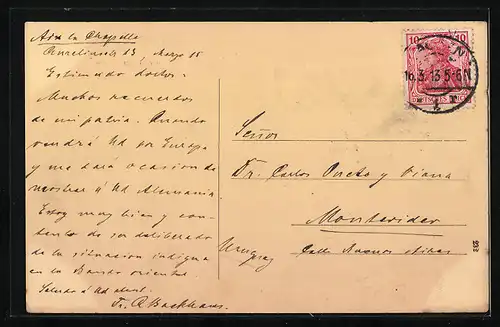 Aix la Chapelle
Marzo 15
Estimado doctor:
Muchos recuerdos
de mi patria. Cuando
vendrá Ud por Europa
y me dará ocasion de
mostrar á Ud Alemania
Estoy muy bien y con-
tento de ser deliberado
de la situacion indigna
en la Banda oriental.
Saluda á Ud atent.
Fr. A. Backhaus.
10 10
16.3.13.5-6N
DEUTSCHES REICH
Señor
Dr. Carlos y Viana
Montevideo
Uruguay
Calle Buenos Aires